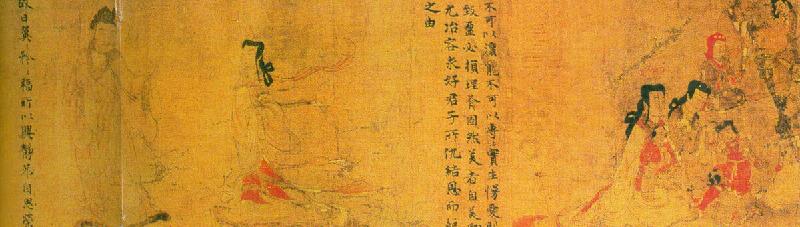 不可以瀆寵不可以專實生慢愛則
致盈必損理有固然美者自美翩
尤冶容求好君子所仇結恩而絕
之由
故曰翼矜福所以興靜恭自思榮